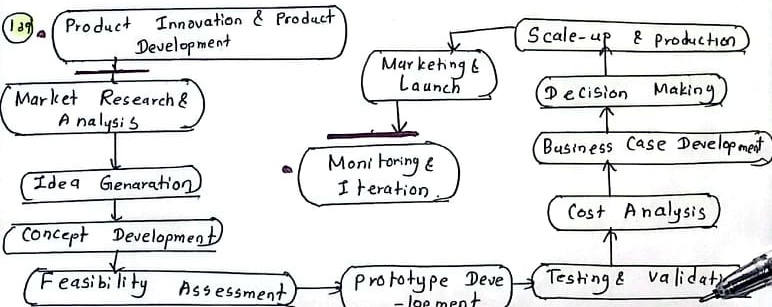 Product Innovation & Product
Development
Market Research &
Analysis
Idea Genaration
Concept Development
Feasibility Assessment
Prototype Deve
-lopment
Testing & Validati
Cost Analysis
Business Case Development
Decision Making
Scale-up & Production
Marketing &
Launch
Monitoring &
Iteration.